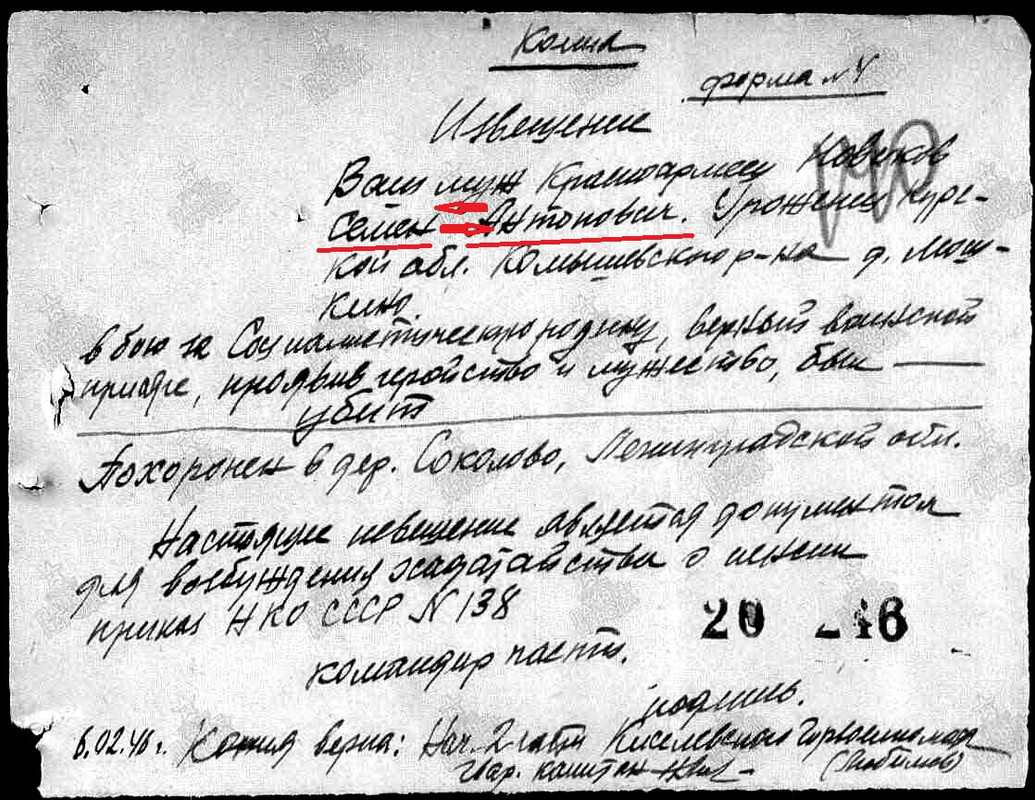 Копия
форма №4
Извещение
Ваш муж Красноармеец Новиков
Семен Антонович. Урожениц Курс-
кой обл. Комышевского р-на д. Мош-
кино.
в бою за Социалистическую родину, верный воинской
присяге, проявив геройство и мужество, был
убит
Похоронен в дер. Соколово, Ленинградской обл.
Настоящие извещение является документом
для возбуждения ходатайства о пенсии
приказ НКО СССР N 138
20 46
командир части.
подпись.
6.02.46 г. Копия верна: Нач. 2 части Киселевского Горвоенкомата
Гвар. капитан (Любимов)